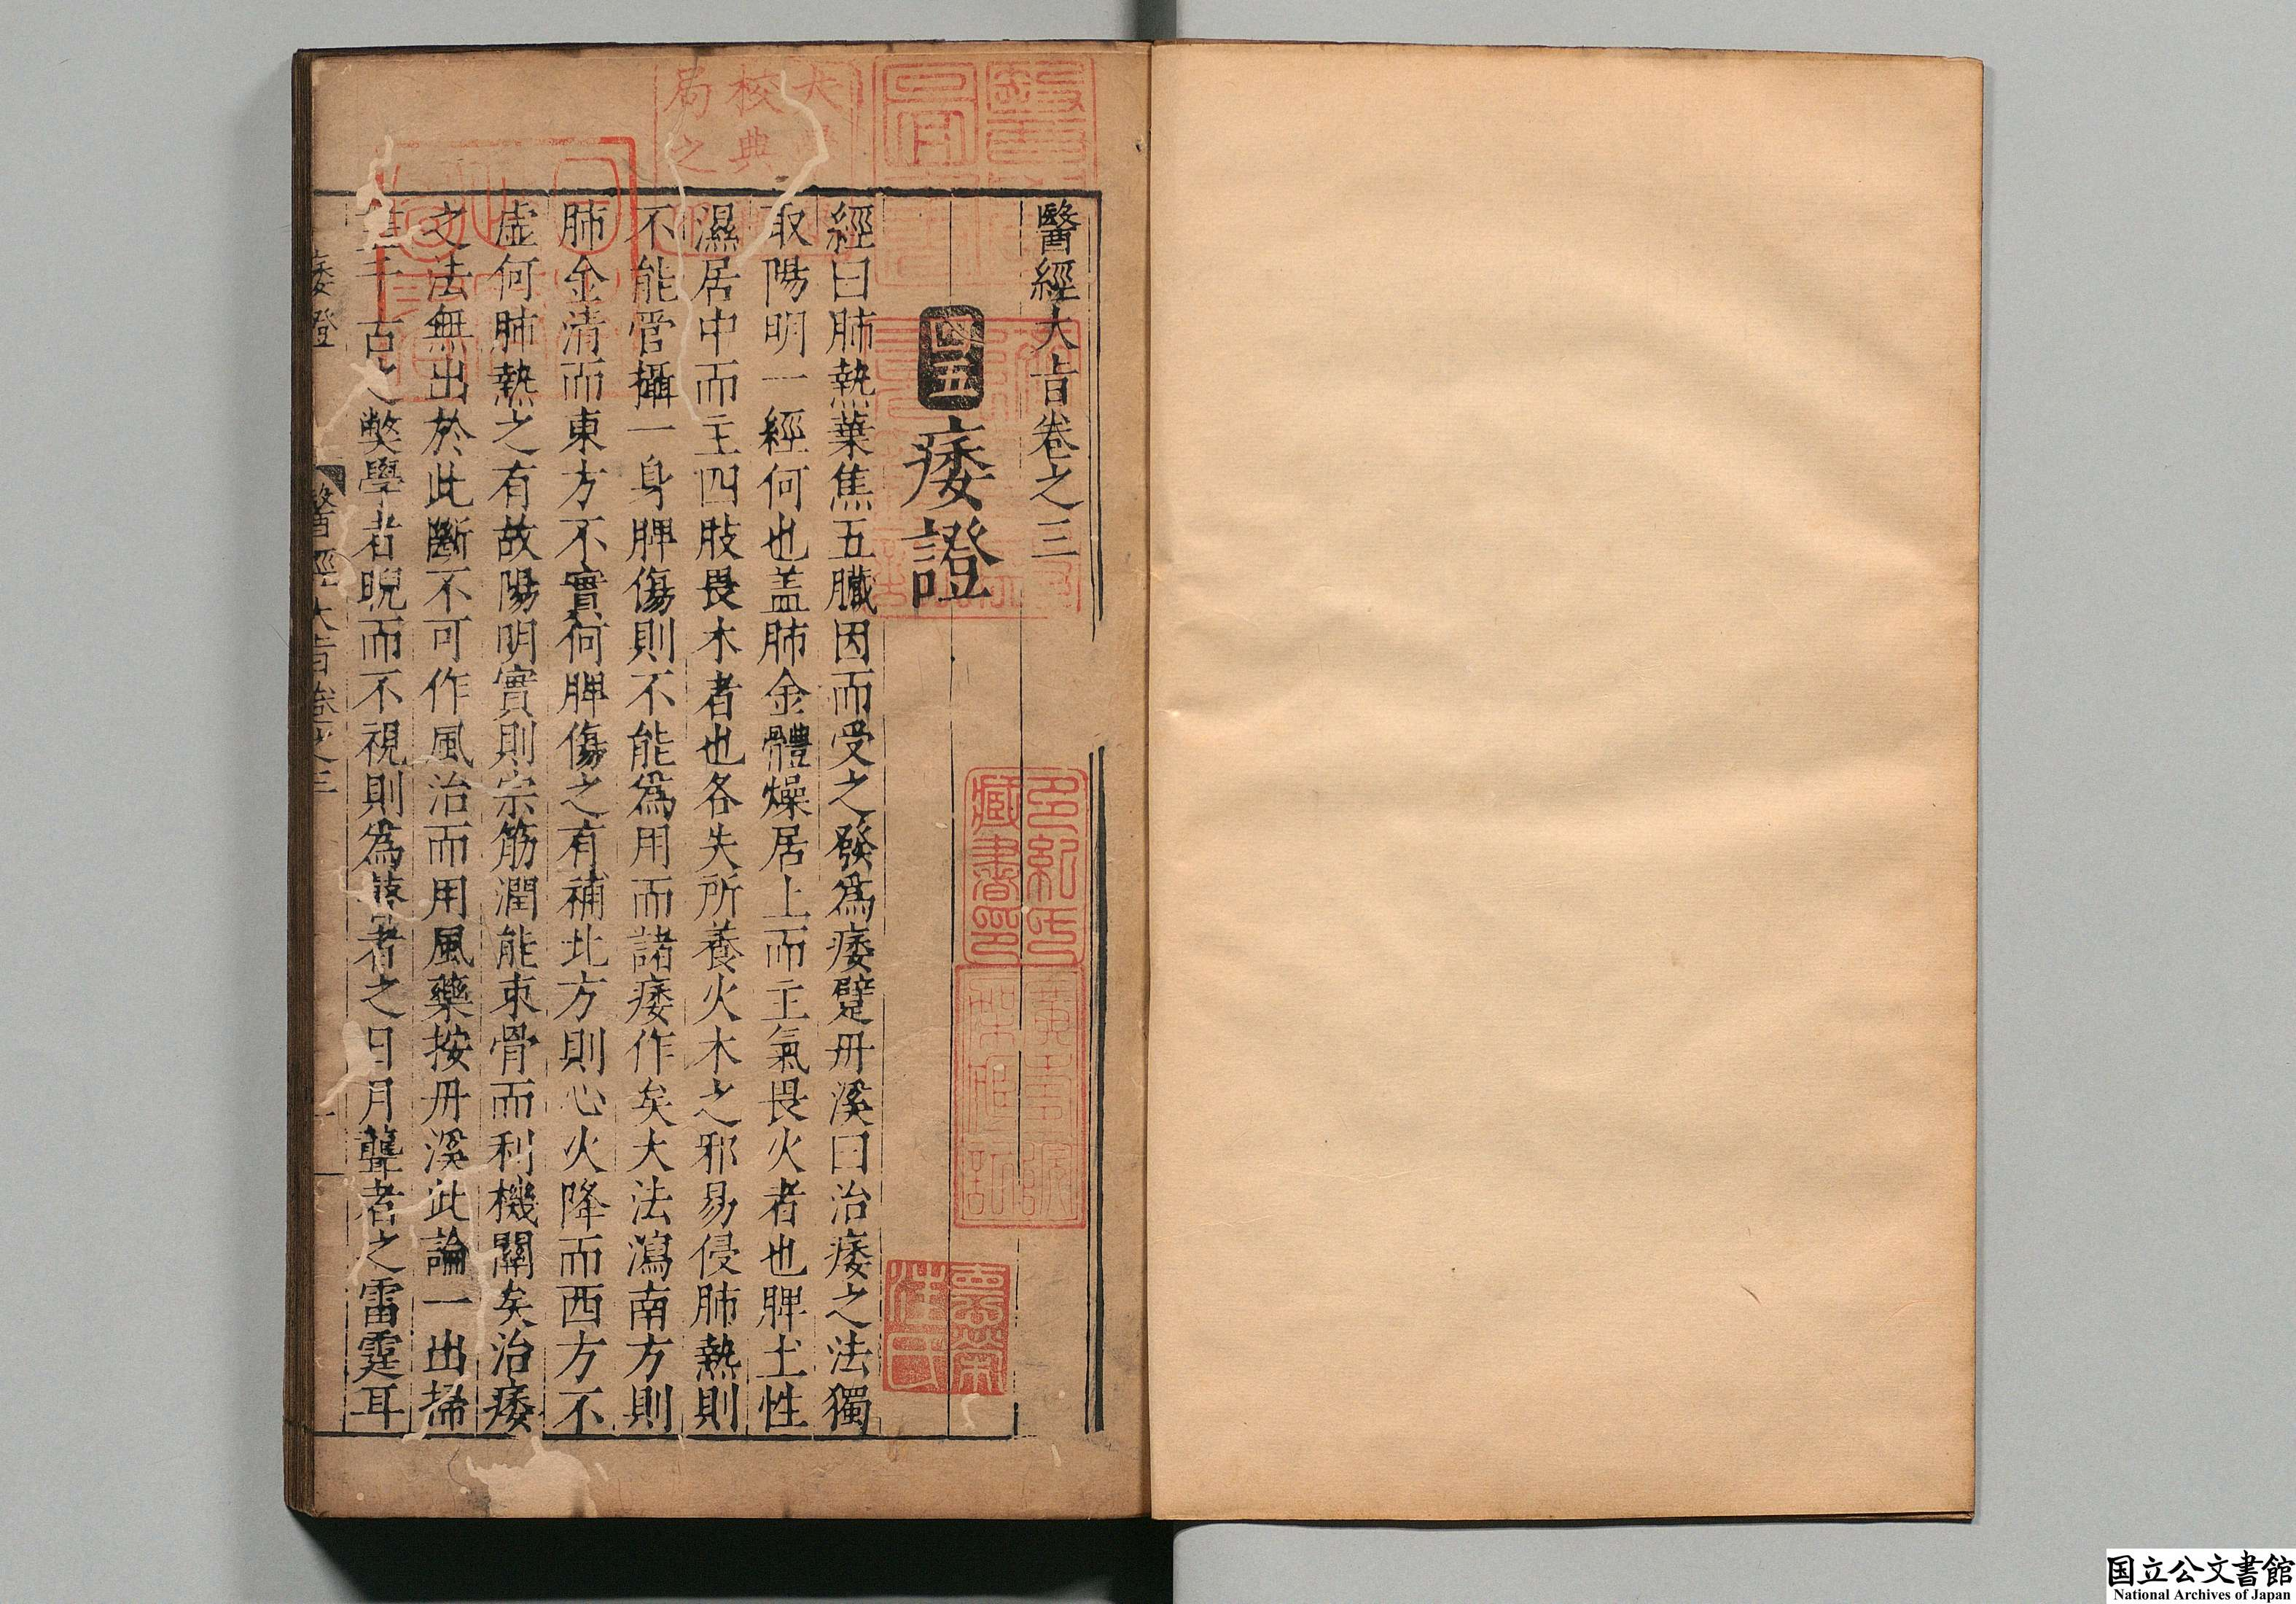 醫經大旨卷之三
四五 痿證
經曰肺熱葉焦五臟因而受之發爲痿躄丹溪曰治痿之法獨
取陽明一經何也盖肺金體燥居上而主氣畏火者也脾土性
濕居中而主四肢畏木者也各失所養火木之邪易侵肺熱則
不能管攝一身脾傷則不能爲用而諸痿作矣大法瀉南方則
肺金清而東方不實何脾傷之有補北方則心火降而西方不
虛何肺熱之有故陽明實則宗筋潤能束骨而利機關矣治痿
之法無出於此斷不可作風治而用風藥按丹溪此論一出掃
千古之弊學者睨而不視則爲瞽者之日月聾者之雷霆耳
痿證
醫經大旨卷之三
一
多紀氏
藏書印
国立公文書館
National Archives of Japan